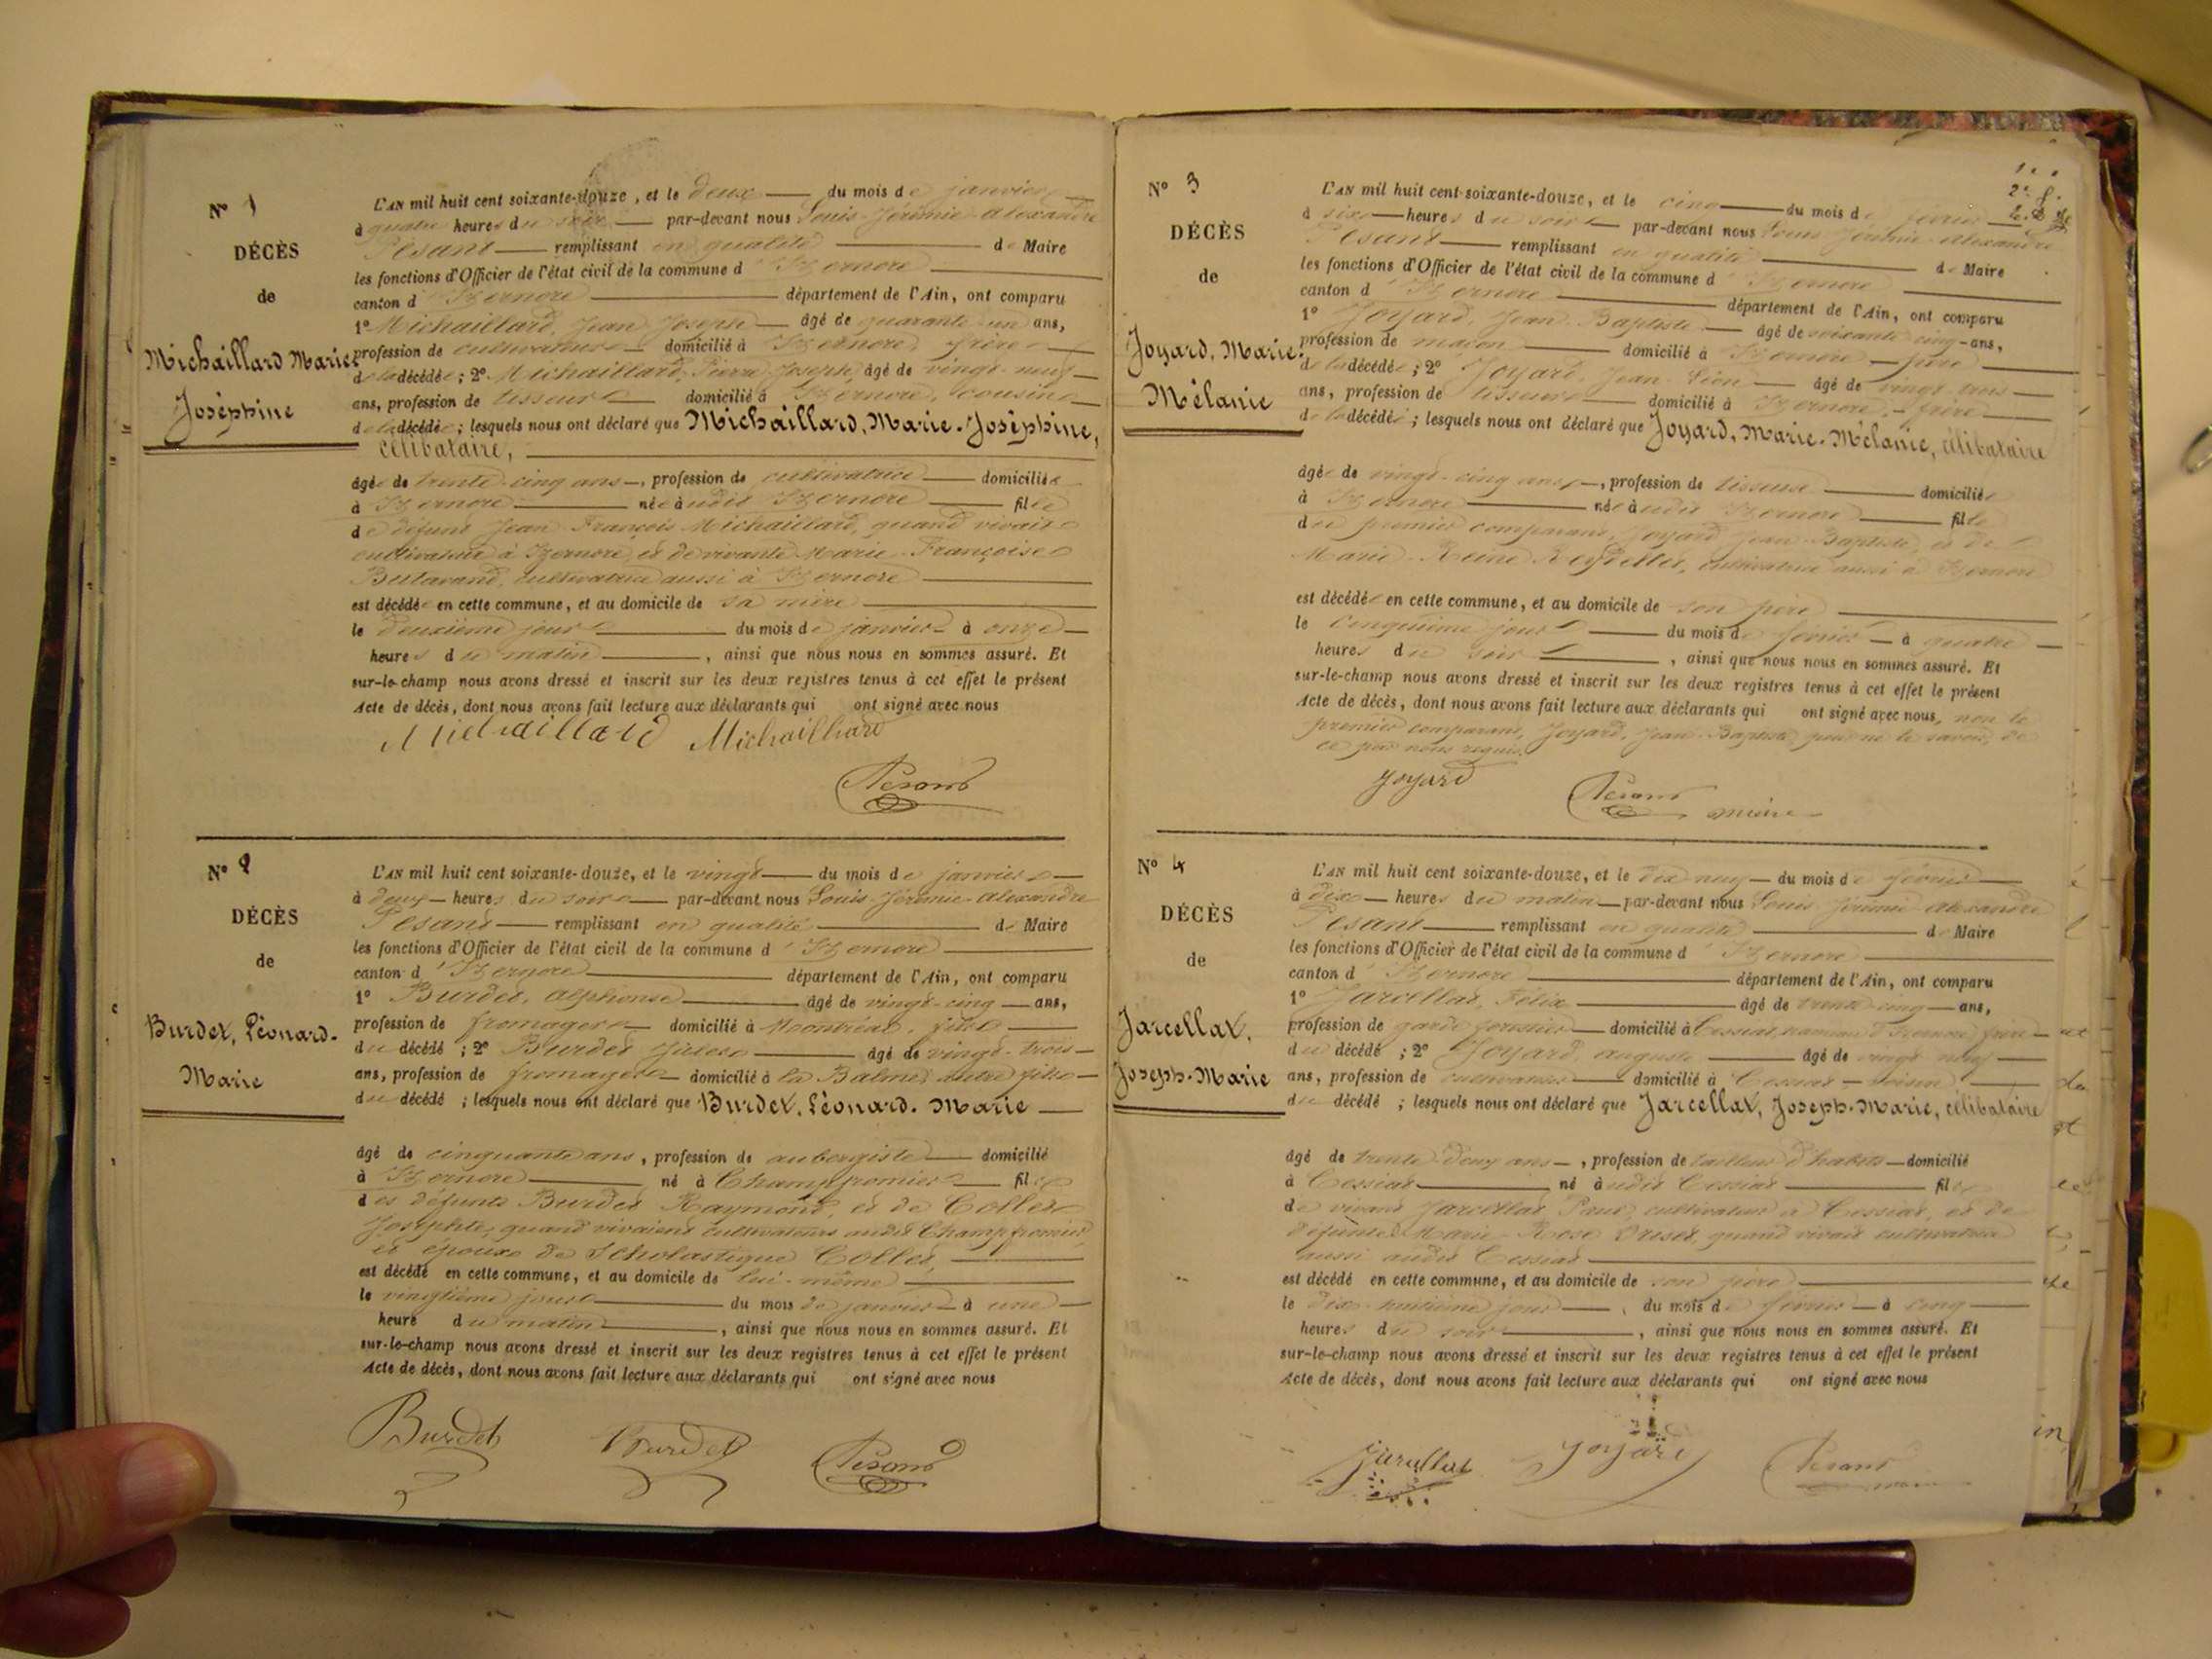 N° 1
DÉCÈS
de
Michaillard Marie
Joséphine
L'AN mil huit cent soixante-douze, et le deux du mois de janvier
à quatre heures du soir par-devant nous Louis Jérémie Alexandre
Pesant remplissant en qualité de Maire
les fonctions d'Officier de l'état civil de la commune d'Izernore
canton d'Izernore département de l'Ain, ont comparu
1° Michaillard, Jean Joseph âgé de quarante un ans,
profession de cultivateur domicilié à Izernore, frère
de la décédée ; 2° Michaillard, Pierre Joseph âgé de vingt-neuf
ans, profession de tisseur domicilié à Izernore, cousin
de la décédée ; lesquels nous ont déclaré que Michaillard, Marie-Joséphine,
célibataire,
âgée de trente cinq ans, profession de cultivatrice domiciliée
à Izernore née audit Izernore fille
de défunt Jean François Michaillard, quand vivait
cultivateur à Izernore et de vivante Marie Françoise
Butavand, cultivatrice aussi à Izernore
est décédée en cette commune, et au domicile de sa mère
le deuxième jour du mois de janvier à onze
heures du matin, ainsi que nous nous en sommes assuré. Et
sur-le-champ nous avons dressé et inscrit sur les deux registres tenus à cet effet le présent
Acte de décès, dont nous avons fait lecture aux déclarants qui ont signé avec nous
Michaillard Michaillard
Pesant
N° 2
DÉCÈS
de
Burdet, Léonard-
Marie
L'AN mil huit cent soixante-douze, et le vingt du mois de janvier
à deux heures du soir par-devant nous Louis Jérémie Alexandre
Pesant remplissant en qualité de Maire
les fonctions d'Officier de l'état civil de la commune d'Izernore
canton d'Izernore département de l'Ain, ont comparu
1° Burdet, Alphonse âgé de vingt-cinq ans,
profession de fromager domicilié à Montréal, fils
du décédé ; 2° Burdet Jules âgé de vingt-trois
ans, profession de fromager domicilié à la Balme autre fils
du décédé ; lesquels nous ont déclaré que Burdet, Léonard-Marie
âgé de cinquante ans, profession de aubergiste domicilié
à Izernore né à Champfromier fils
des défunts Burdet Raymond, et de Collet
Josephte, quand vivaient cultivateurs audit Champfromier
et époux de Scholastique Collet,
est décédé en cette commune, et au domicile de lui-même
le vingtième jour du mois de janvier à une
heure du matin, ainsi que nous nous en sommes assuré. Et
sur-le-champ nous avons dressé et inscrit sur les deux registres tenus à cet effet le présent
Acte de décès, dont nous avons fait lecture aux déclarants qui ont signé avec nous
Burdet Burdet Pesant
N° 3
DÉCÈS
de
Joyard, Marie-
Mélanie
L'AN mil huit cent soixante-douze, et le cinq du mois de février
à six heures du soir par-devant nous Louis Jérémie Alexandre
Pesant remplissant en qualité de Maire
les fonctions d'Officier de l'état civil de la commune d'Izernore
canton d'Izernore département de l'Ain, ont comparu
1° Joyard, Jean-Baptiste âgé de soixante cinq ans,
profession de maçon domicilié à Izernore père
de la décédée ; 2° Joyard, Jean-Léon âgé de vingt-trois
ans, profession de tisseur domicilié à Izernore, frère
de la décédée ; lesquels nous ont déclaré que Joyard, Marie-Mélanie, célibataire
âgée de vingt-cinq ans, profession de tisseuse domiciliée
à Izernore née audit Izernore fille
du premier comparant, Joyard Jean-Baptiste, et de
Marie-Reine Reydellet, cultivatrice aussi à Izernore
est décédée en cette commune, et au domicile de son père
le cinquième jour du mois de février à quatre
heures du soir, ainsi que nous nous en sommes assuré. Et
sur-le-champ nous avons dressé et inscrit sur les deux registres tenus à cet effet le présent
Acte de décès, dont nous avons fait lecture aux déclarants qui ont signé avec nous, non le
premier comparant, Joyard, Jean-Baptiste pour ne le savoir, de
ce par nous requis.
Joyard Pesant maire
N° 4
DÉCÈS
de
Jarcellat,
Joseph-Marie
L'AN mil huit cent soixante-douze, et le dix neuf du mois de février
à dix heures du matin par-devant nous Louis Jérémie Alexandre
Pesant remplissant en qualité de Maire
les fonctions d'Officier de l'état civil de la commune d'Izernore
canton d'Izernore département de l'Ain, ont comparu
1° Jarcellat, Félix âgé de trente cinq ans,
profession de garde forestier domicilié à Cessiat, hameau d'Izernore frère
du décédé ; 2° Joyard, Auguste âgé de vingt neuf
ans, profession de cultivateur domicilié à Cessiat voisin
du décédé ; lesquels nous ont déclaré que Jarcellat, Joseph-Marie, célibataire
âgé de trente deux ans, profession de tailleur d'habits domicilié
à Cessiat né audit Cessiat fils
de vivant Jarcellat Paul, cultivateur à Cessiat, et de
défunte Marie-Rose quand vivait cultivatrice
aussi audit Cessiat
est décédé en cette commune, et au domicile de son père
le dix-huitième jour du mois de février à cinq
heures du soir, ainsi que nous nous en sommes assuré. Et
sur-le-champ nous avons dressé et inscrit sur les deux registres tenus à cet effet le présent
Acte de décès, dont nous avons fait lecture aux déclarants qui ont signé avec nous
Jarcellat Joyard Pesant